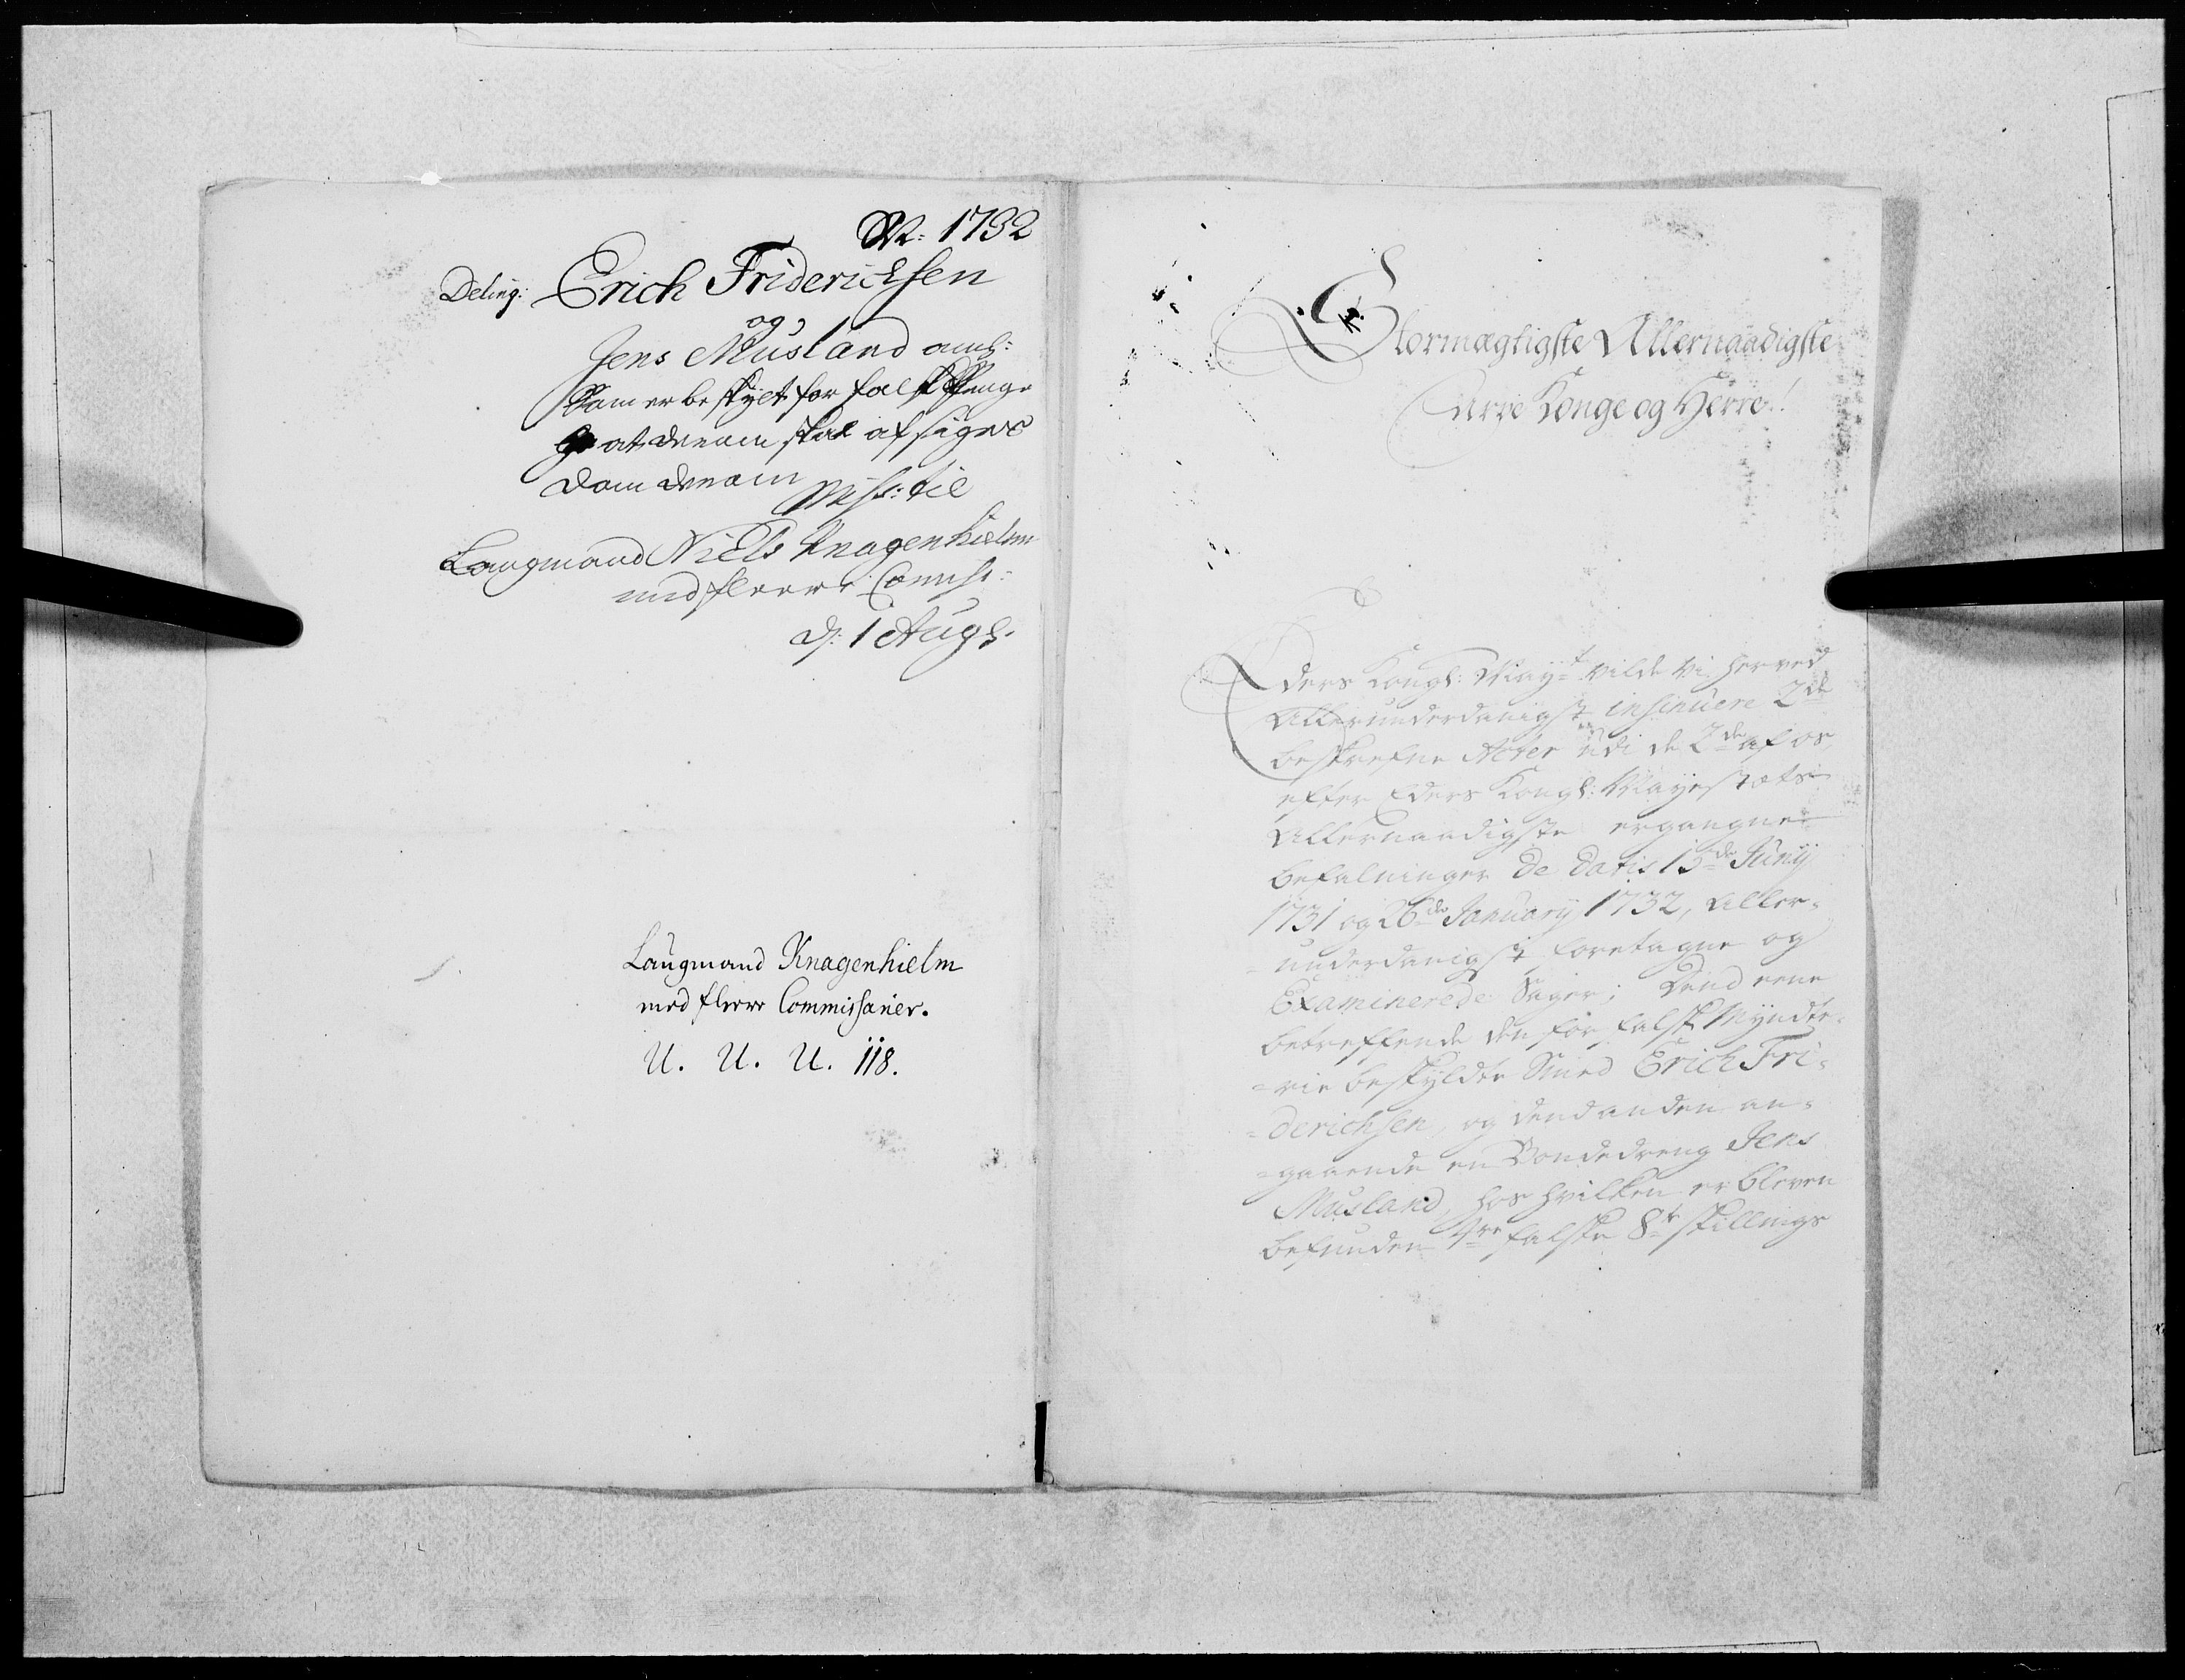 N: 1732
Deling: Erich Friderichsen
og
Jens Musland anl:
som er beskylt for falsk Penge
at derom skal afsiges
dom derom
Miss: til
Laugmand Niels Knagenhielm
med fleere Comiss:
d: 1 Augs.
Laugmand Knagenhielm
med fleere Commissarier.
U. U. U. 118.
Stormægtigste Allernaadigste
Arve Konge og Herre!
Eders Kongl: May.t vilde vi herved
Allerunderdanigst insinuere 2de
beskrefne Acter udi de 2de af os
efter Eders Kongl: Mayestæts
Allernaadigste ergangne
befalninger de datis 15de Junij
1731 og 26de Januarij 1732, aller-
-underdanigst foretagne og
Examinerede Sager; Dend eene
betreffende den for falsk Myndte-
-rie beskyldte Smed Erich Fri-
-derichsen, og dend anden an-
-gaaende en Bondedreng Jens
Musland, hos hvilken er bleven
befunden falske 8te skillings